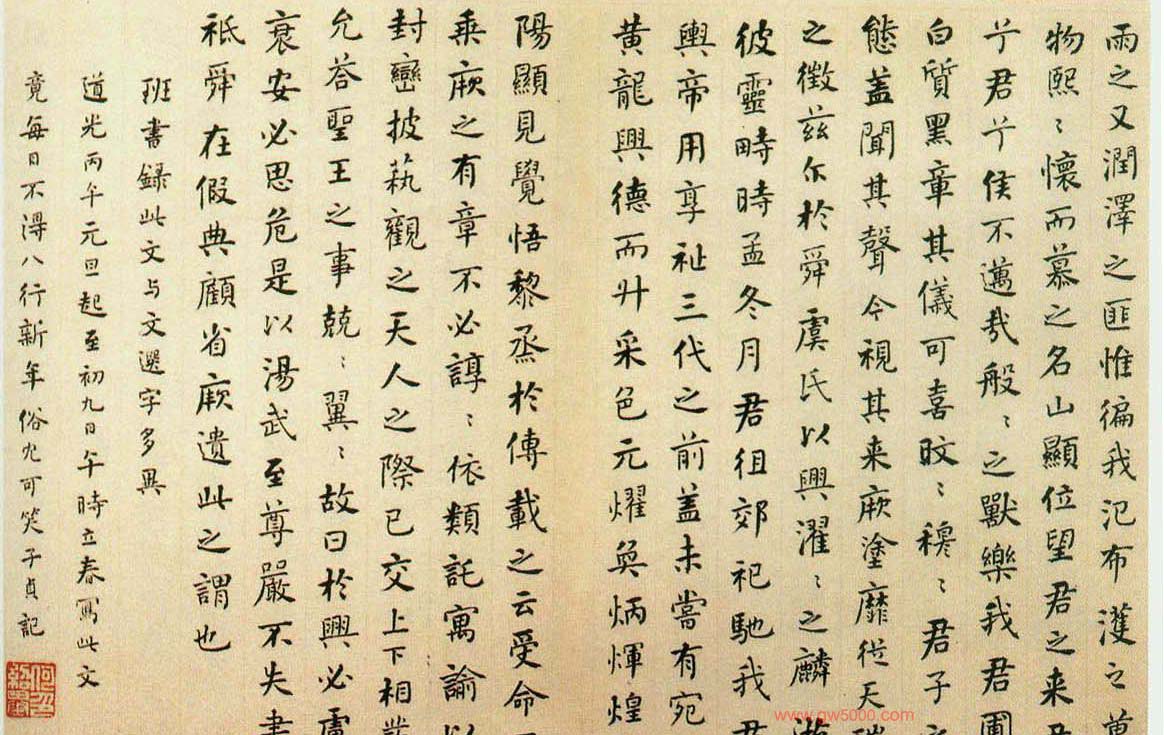 雨之又潤澤之匪惟徧我氾布濩之萬
物熙〻懷而慕之名山顯位望君之来
兮君兮侯不邁哉般〻之獸樂我君圃
白質黑章其儀可喜旼〻穆〻君子之
態蓋聞其聲今視其来厥塗靡從天瑞
之徵茲尔於舜虞氏以興濯〻之麟游
彼靈畤時孟冬月君徂郊祀馳我君
輿帝用享祉三代之前蓋未嘗有宛
黃龍興德而升采色元燿奐炳煇煌
陽顯見覺悟黎烝於傳載之云受命
乘厥之有章不必諄〻依類託寓諭以
封巒披藝觀之天人之際已交上下相發
允荅聖王之事兢〻翼〻故曰於興必慮
衰安必思危是以湯武至尊嚴不失肅
祗舜在假典顧省厥遺此之謂也
班書録此文与文選字多異
道光丙午元旦起至初九日午時立春寫此文
竟每日不得八行新年俗冗可笑子貞記
www.gw5000.com